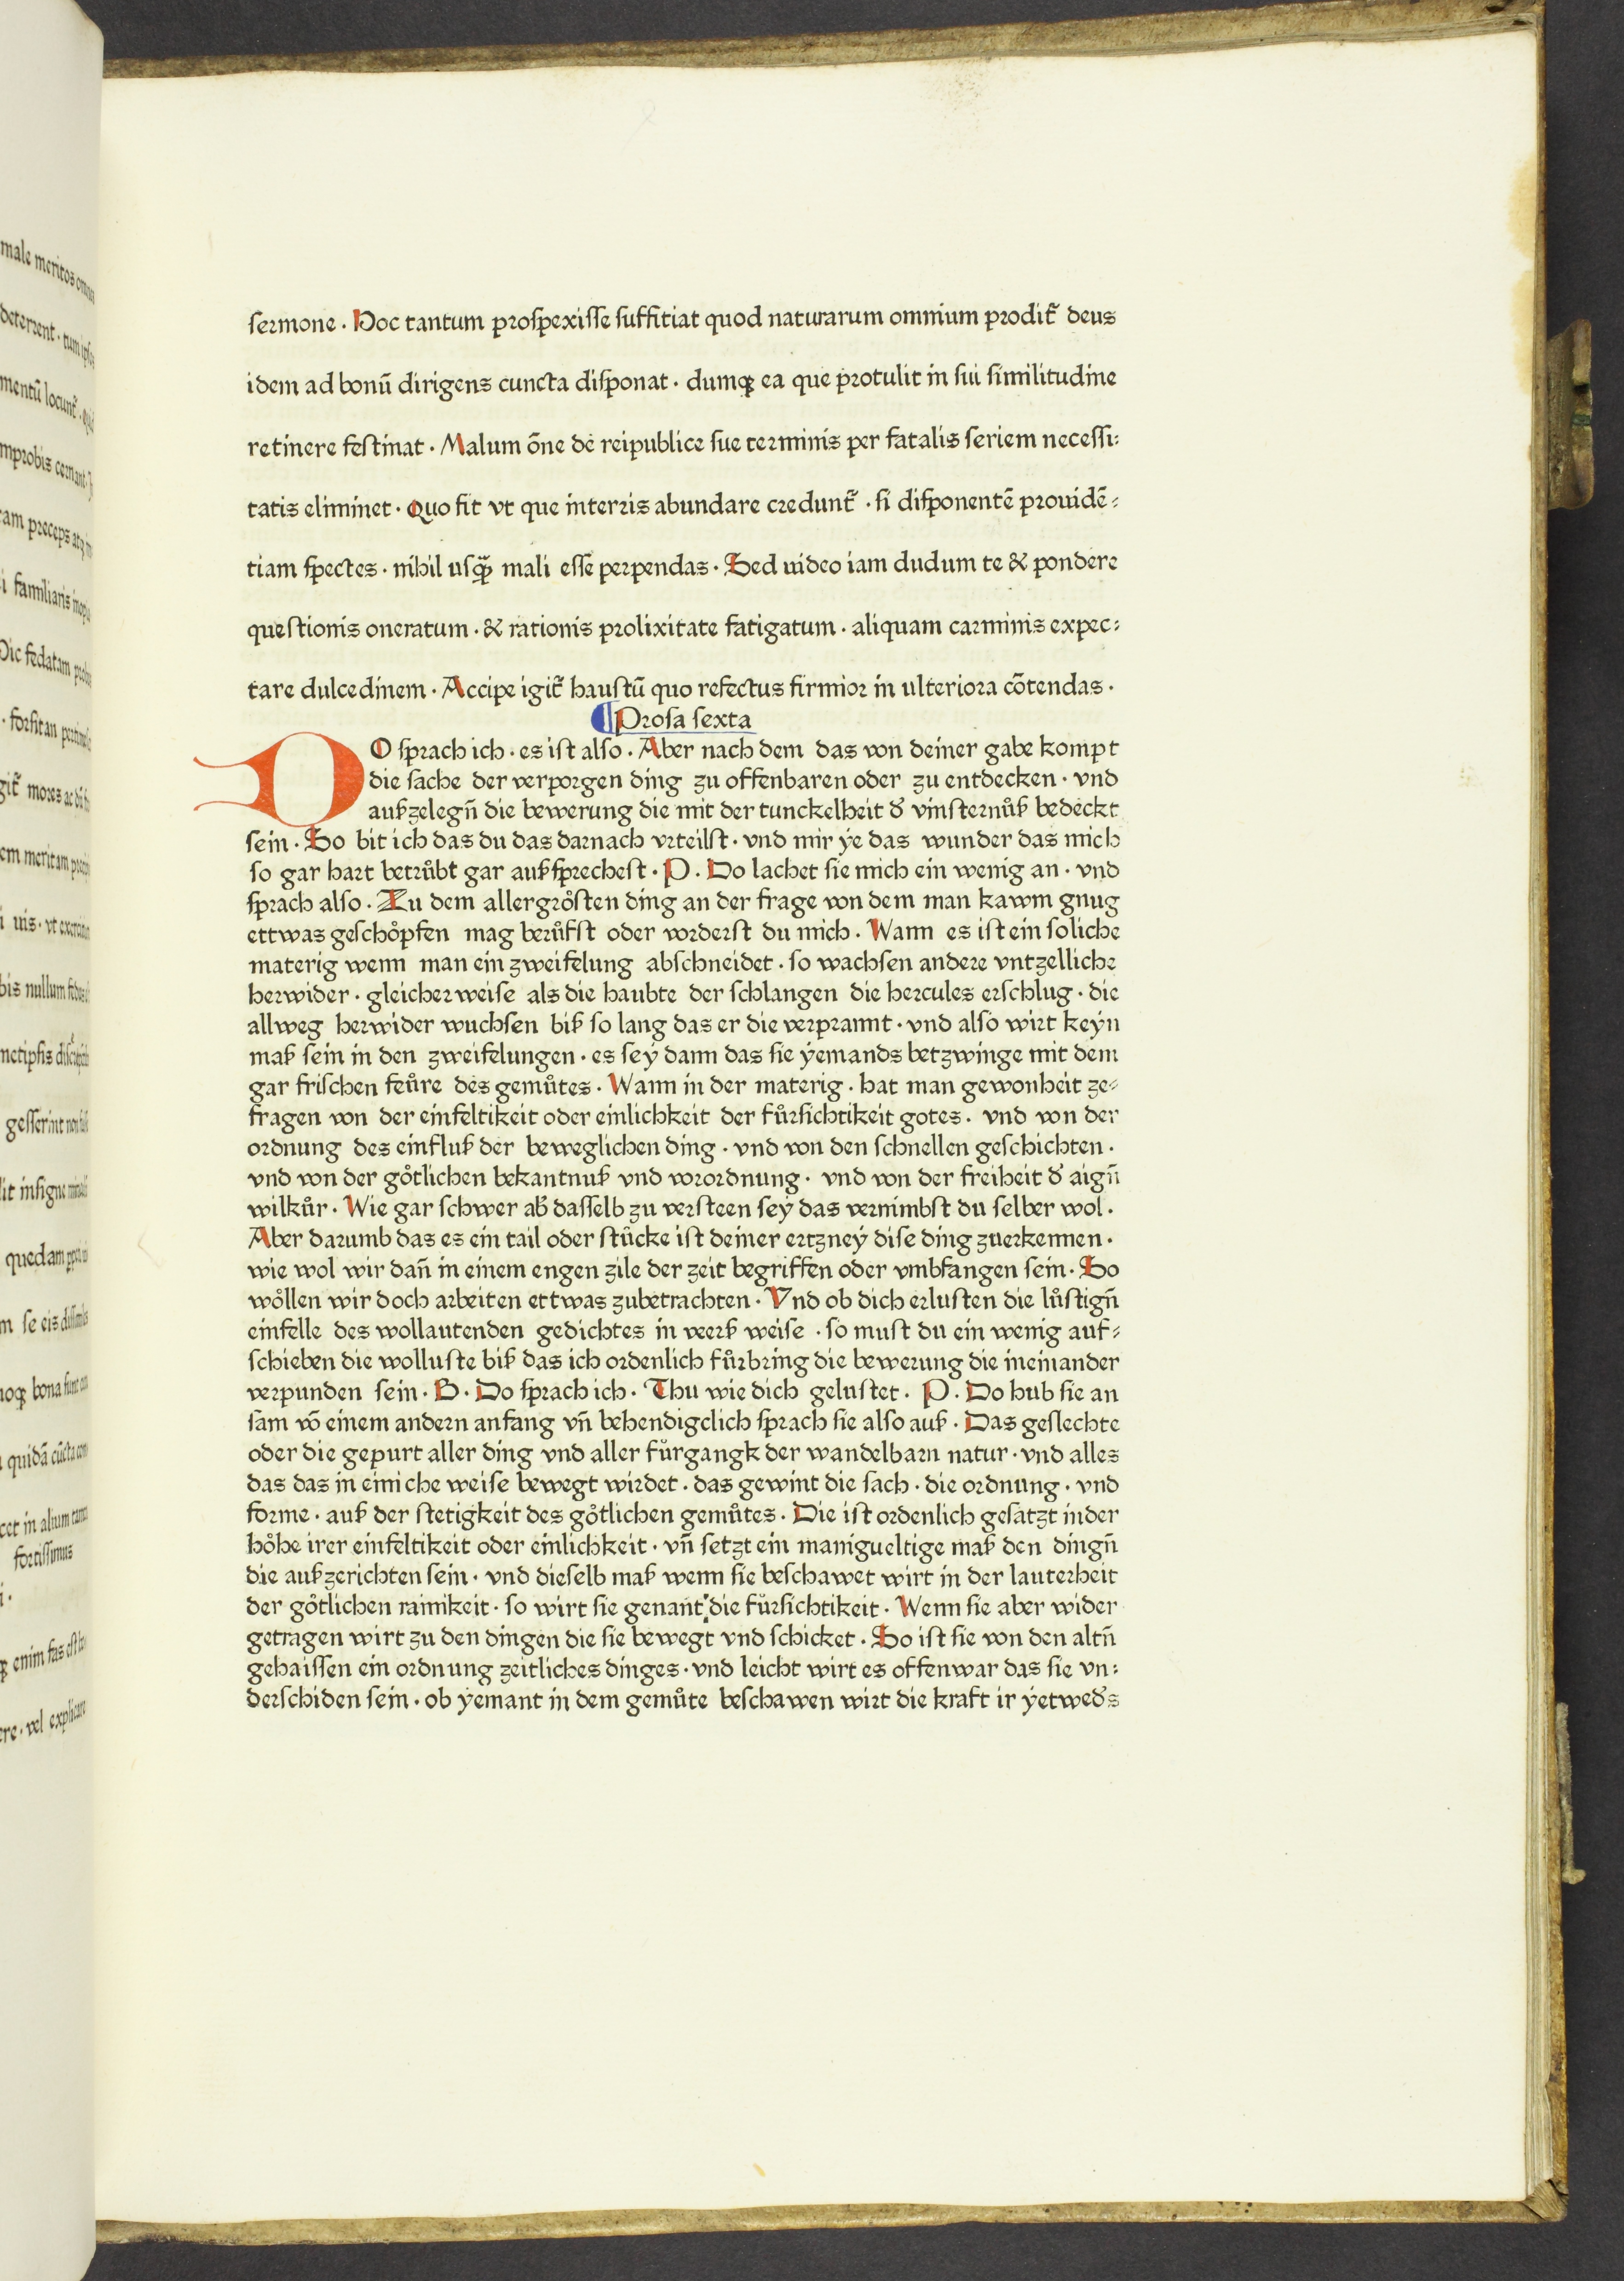 sermone · Hoc tantum prospexisse suffitiat quod naturarum omnium prodit᷑ deus
idem ad bonū dirigens cuncta disponat · dumqꝫ ea que protulit in sui similitudine
retinere festinat · Malum ōne de reipublice sue terminis per fatalis seriem necessi:
tatis eliminet · Quo fit vt que interris abundare credunt᷑ · si disponentē prouidē⸗
tiam spectes · nihil usqꝫ̈ mali esse perpendas · Sed uideo iam dudum te & pondere
questionis oneratum · & rationis prolixitate fatigatum · aliquam carminis expec:
tare dulcedinem · Accipe igit᷑ haustū quo refectus firmior in ulteriora cōtendas ·
¶Prosa sexta
DO sprach ich · es ist also · Aber nach dem das von deiner gabe kompt
die sache der verporgen ding zu offenbaren oder zu entdecken · vnd
außzelegn̄ die bewerung die mit der tunckelheit d᷑ vinsternůß bedeckt
sein · So bit ich das du das darnach vrteilst · vnd mir ÿe das wunder das mich
so gar hart betrůbt gar außsprechest · P · Do lachet sie mich ein wenig an · vnd
sprach also · Zu dem allergrősten ding an der frage von dem man kawm gnug
ettwas geschőpfen mag berůfst oder vorderst du mich · Wann es ist ein soliche
materig wenn man ein zweifelung abschneidet · so wachsen andere vntzelliche
herwider · gleicherweise als die haubte der schlangen die hercules erschlug · die
allweg herwider wuchsen biß so lang das er die verprannt · vnd also wirt keÿn
maß sein in den zweifelungen · es seÿ dann das sie ÿemands betzwinge mit dem
gar frischen feůre des gemůtes · Wann in der materig · hat man gewonheit ze⸗
fragen von der einfeltikeit oder einlichkeit der fůrsichtikeit gotes · vnd von der
ordnung des einfluß der beweglichen ding · vnd von den schnellen geschichten ·
vnd von der gőtlichen bekantnuß vnd vorordnung · vnd von der freiheit d᷑ aign̄
wilkůr · Wie gar schwer ab᷑ dasselb zu versteen seÿ das vernimbst du selber wol ·
Aber darumb das es ein tail oder stůcke ist deiner ertzneÿ dise ding zuerkennen ·
wie wol wir dan̄ in einem engen zile der zeit begriffen oder vmbfangen sein · So
wőllen wir doch arbeiten ettwas zubetrachten · Vnd ob dich erlusten die lůstign̄
einfelle des wollautenden gedichtes in verß weise · so must du ein wenig auf⸗
schieben die wolluste biß das ich ordenlich fůrbring die bewerung die ineinander
verpunden sein · B · Do sprach ich · Thu wie dich gelustet · P · Do hub sie an
sam vō einem andern anfang vn̄ behendigclich sprach sie also auß · Das geslechte
oder die gepurt aller ding vnd aller fůrgangk der wandelbarn natur · vnd alles
das das in einiche weise bewegt wirdet · das gewint die sach · die ordnung · vnd
forme · auß der stetigkeit des gőtlichen gemůtes · Die ist ordenlich gesatzt inder
hőhe irer einfeltikeit oder einlichkeit · vn̄ setzt ein manigueltige maß den dingn̄
die außzerichten sein · vnd dieselb maß wenn sie beschawet wirt in der lauterheit
der gőtlichen rainikeit · so wirt sie genant die fürsichtikeit · Wenn sie aber wider
getragen wirt zu den dingen die sie bewegt vnd schicket · So ist sie von den altn̄
gehaissen ein ordnung zeitliches dinges · vnd leicht wirt es offenwar das sie vn:
derschiden sein · ob ÿemant in dem gemůte beschawen wirt die kraft ir ÿetwed᷑s